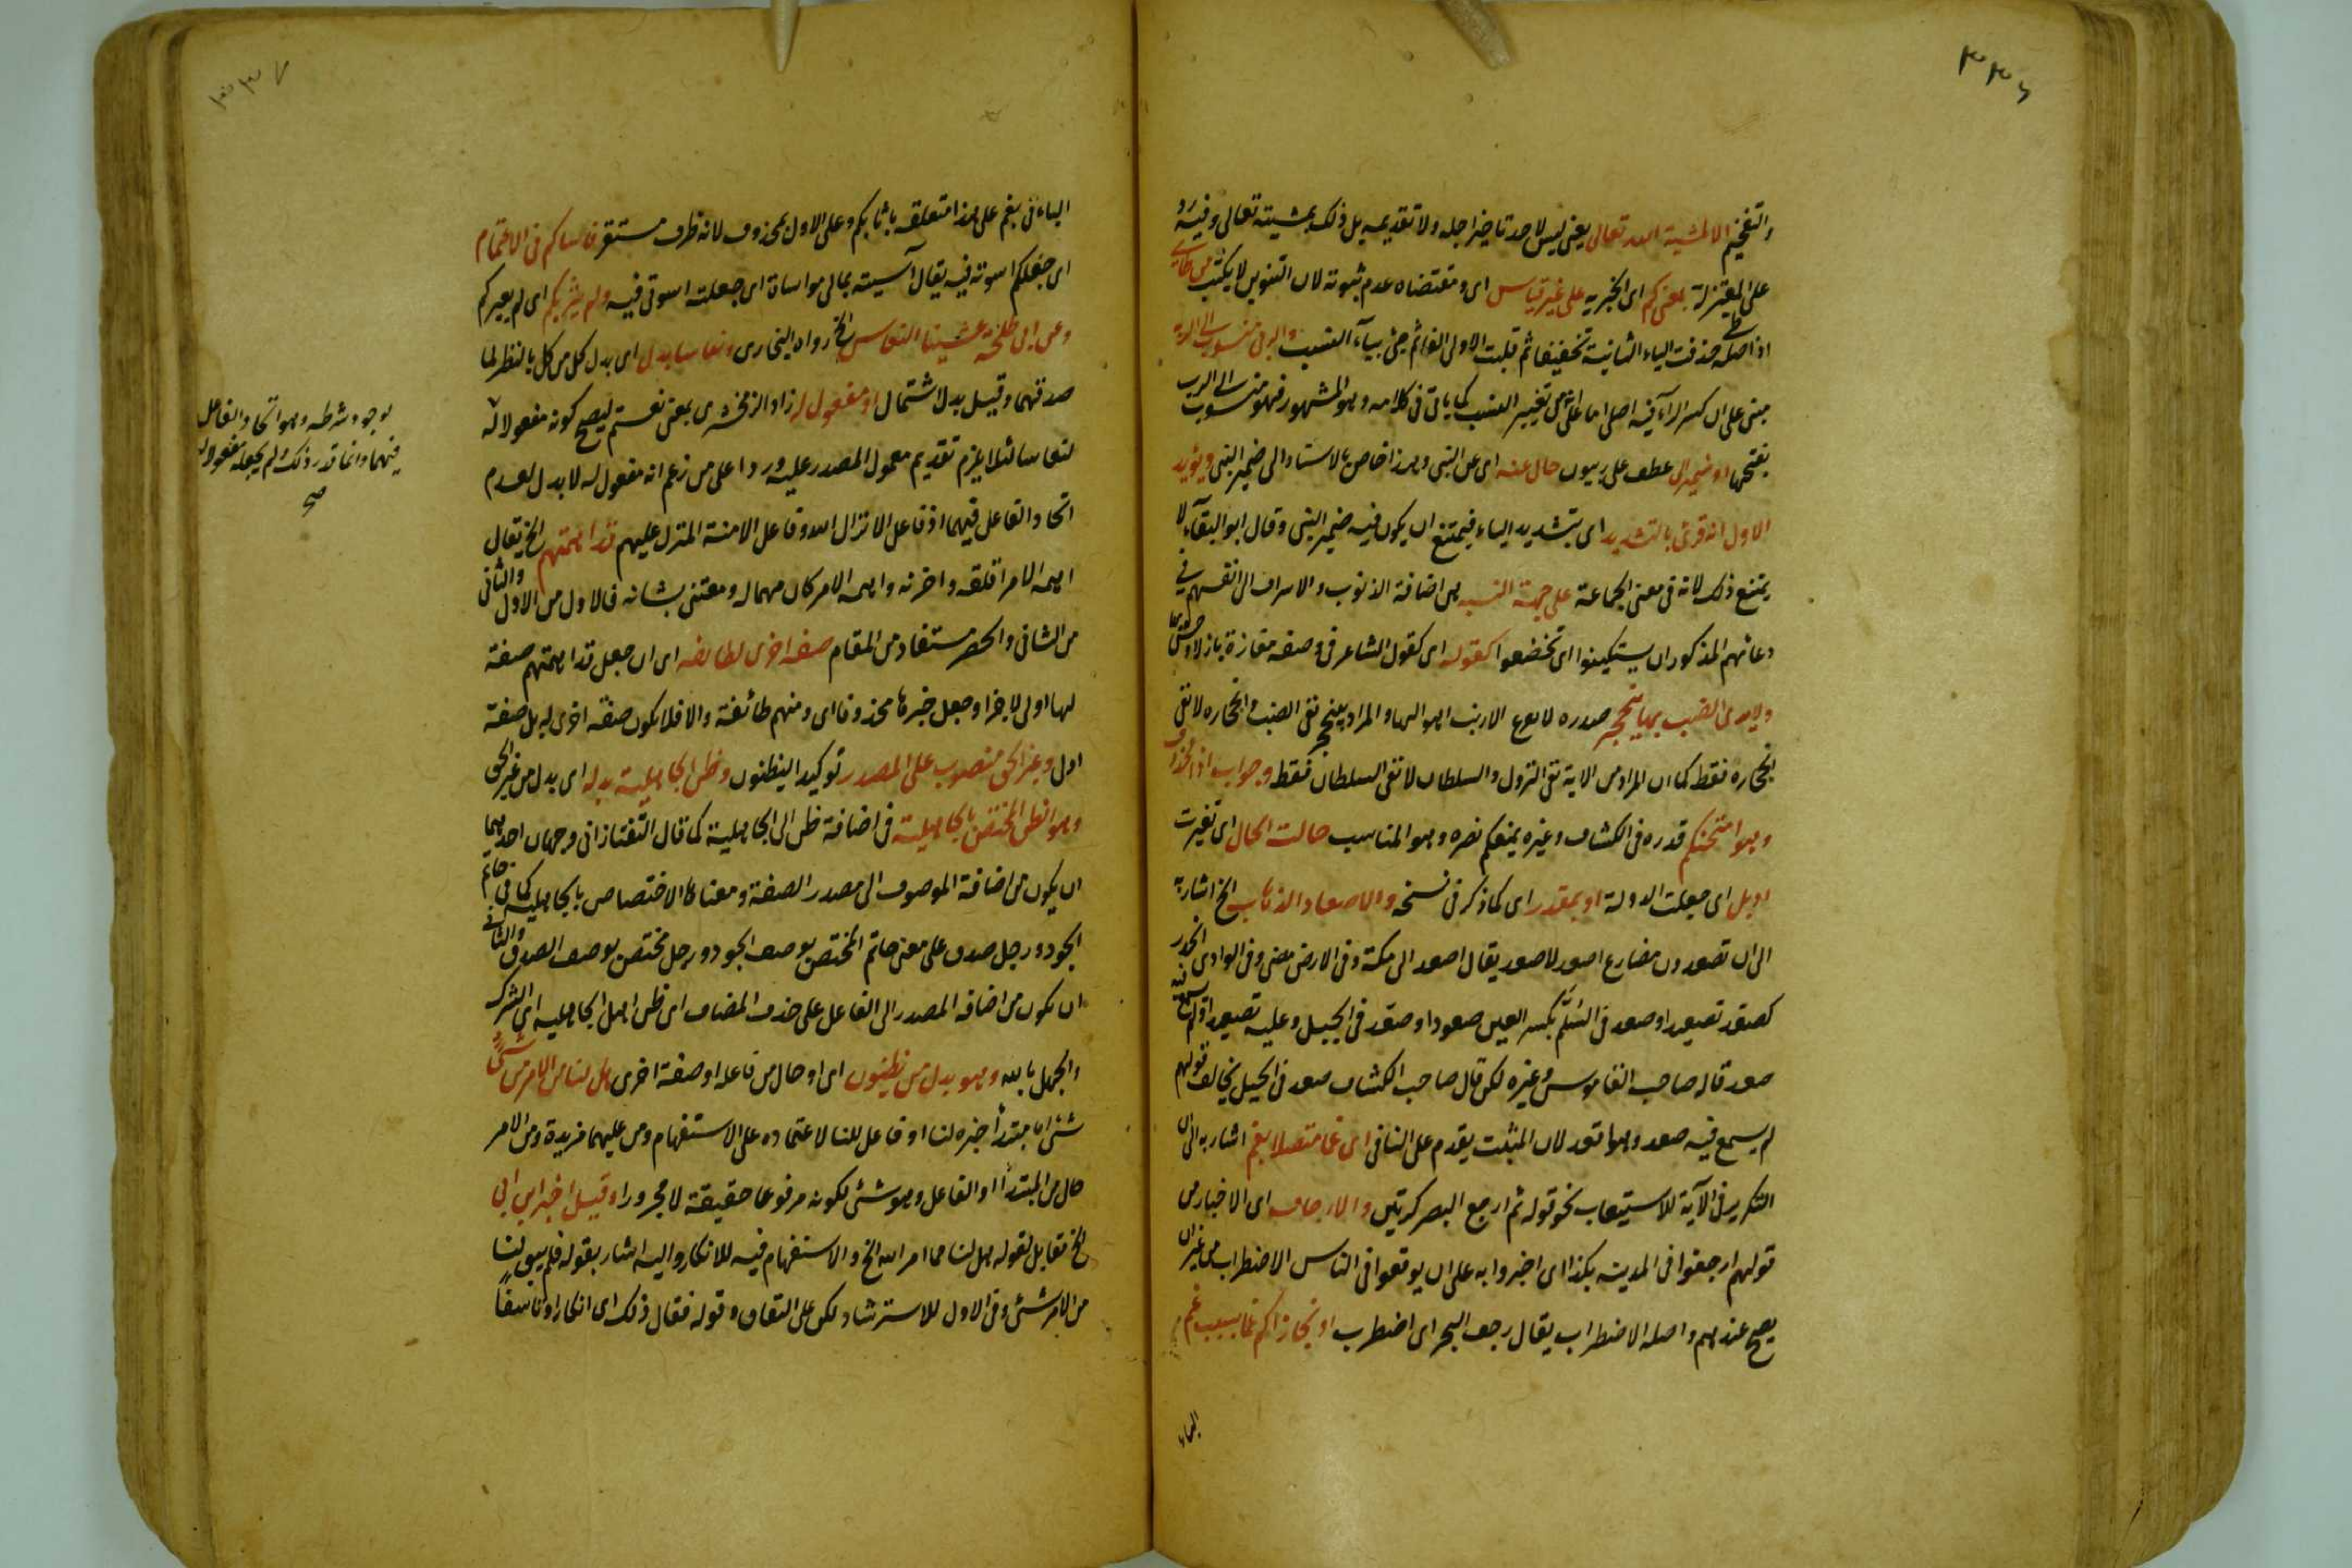 ۳۳۶
والتفخيم الا لمشية الله تعالى يعنى ليس لاحد تاخير اجله ولا تقديمه بل ذلك بمشيته تعالى وفيه رد
على المعتزلة بمعنى كم اى الخبريه على غير قياس اى ومقتضاه عدم ثبوته لان التنوين لا يكتب
اذا اصله حذفت الياء الثانية تخفيفا ثم قلبت الاولى الفا ثم جئ بياء النسب والربى منسوب الى الربة
مبنى على ان كسر الراء فيه اصلى اما على انه من تغيير النسب كما ياتى فى كلامه وهو المشهور فهو منسوب الى الرب
بفتحها او ضمير الى عطف على ربيون حال عنه اى عن النبى وهذا خاص بالاسناد الى ضمير النبى ويؤيد
الاول انه قرئ بالتشديد اى بتشديد الياء فيمتنع ان يكون فيه ضمير النبى وقال ابو البقاء لا
يمتنع ذلك لانه فى معنى الجماعة على جهة النسبه هى اضافة الذنوب والاسراف الى انفسهم فى
دعائهم المذكور ان يستكينوا اى تخضعوا كقوله اى كقول الشاعر فى وصفه مفازة
ولا يرى الضب بها ينجحر صدره لا يفزع الارنب اهوالها والمراد نفى الضب وانجحاره لا نفى
انجحاره فقط كما ان المراد من الاية نفى النزول والسلطان لا نفى السلطان فقط وجواب اذا محذوف
وهو امتحنكم قدره فى الكشاف وغيره يمنعكم نصره وهو المناسب حالت الحال اى تغيرت
اديل اى جعلت الدولة او بمقدر اى كما ذكر فى نسخه والاصعاد الذهاب الخ اشار به
الى ان تصعدون مضارع اصعد لا صعد يقال اصعد الى مكة وفى الارض مضى وفى الوادى انحدر
كصعد تصعيدا وصعد فى السلم بكسر العين صعودا وصعد فى الجبل وعليه تصعيدا ولم يسمع فيه
صعد قاله صاحب القاموس وغيره لكن قال صاحب الكشاف صعد فى الجبل يخالف قولهم
لم يسمع فيه صعد وهو اقعد لان المثبت يقدم على النافى اى غما متصلا بغم اشار به الى ان
التكرير فى الآية للاستيعاب نحو قوله ثم ارجع البصر كرتين والارجاف اى الاخبار من
قولهم ارجفوا فى المدينة بكذا اى اخبروا به على ان يوقعوا فى الناس الاضطراب من غير ان
يصح عندهم واصله الاضطراب يقال رجف البحر اى اضطرب او فجازاكم غما بسبب غم
الباء
۳۳۷
الباء فى بغم على هذا متعلقة باثابكم وعلى الاول بمحذوف لانه ظرف مستقر فاساكم فى الاغتمام
اى جعلكم اسوته فيه يقال آسيته بمالى مواساة اى جعلته اسوتى فيه ولم يثربكم اى لم يعيركم
وعن ابى طلحة غشينا النعاس الخ رواه البخارى ونعاسا بدل اى بدل كل من كل بالنظر لما
صدقهما وقيل بدل اشتمال او مفعول له زاد الزمخشرى بمعنى نعستم ليصح كونه مفعولا له
لنعاسا لئلا يلزم تقديم معمول المصدر عليه وردا على من زعم انه مفعول له لا بدل لعدم
اتحاد الفاعل فيهما اذ فاعل الانزال الله وفاعل الامنة المنزل عليهم قد اهمتهم الخ يقال
اهمه الامر اقلقه واحزنه واهمه الامر كان مهما له ومعتنى بشانه فالاول من الاول والثانى
من الثانى والحصر مستفاد من المقام صفة اخرى لطائفه اى ان جعل قد اهمتهم صفة
لها اولى لا خبرا وجعل خبرها محذوفا اى ومنهم طائفة والا فلا يكون صفة اخرى له بل صفة
اول وغير الحق منصوب على المصدر توكيدا ليظنون وظن الجاهلية بدله اى بدل من غير الحق
وهو الظن المختص بالجاهلية فى اضافة ظن الى الجاهلية كما قال التفتازانى وجهان احدهما
ان يكون من اضافة الموصوف الى مصدر الصفة ومعناها الاختصاص بالجاهلية كما فى حاتم
الجود ورجل صدق على معنى حاتم المختص بوصف الجود ورجل مختص بوصف الصدق والثانى
ان يكون من اضافة المصدر الى الفاعل على حذف المضاف اى ظن اهل الجاهليه اى الشرك
والجهل بالله وهو بدل من يظنون اى او حال من فاعله او صفة اخرى هل لنا من الامر من شئ
شئ اما مبتدأ خبره لنا او فاعل للنا لاعتماده على الاستفهام ومن عليهما مزيدة ومن الامر
حال من المبتدأ او الفاعل وهو شئ لكونه مرفوعا حقيقة لا مجرورا وقيل اخبر ابن ابى
الخ مقابل لقوله هل لنا مما امر الله الخ والاستفهام فيه للانكار واليه اشار بقوله فلم يبق لنا
من الامر شئ وفى الاول للاسترشاد لكن على النفاق وقوله فقال ذلك اى انكارا وتاسفا
لوجود شرطه وهو اتحاد الفاعل
فيهما وانما قدر ذلك ولم يجعله مفعولا له
صح